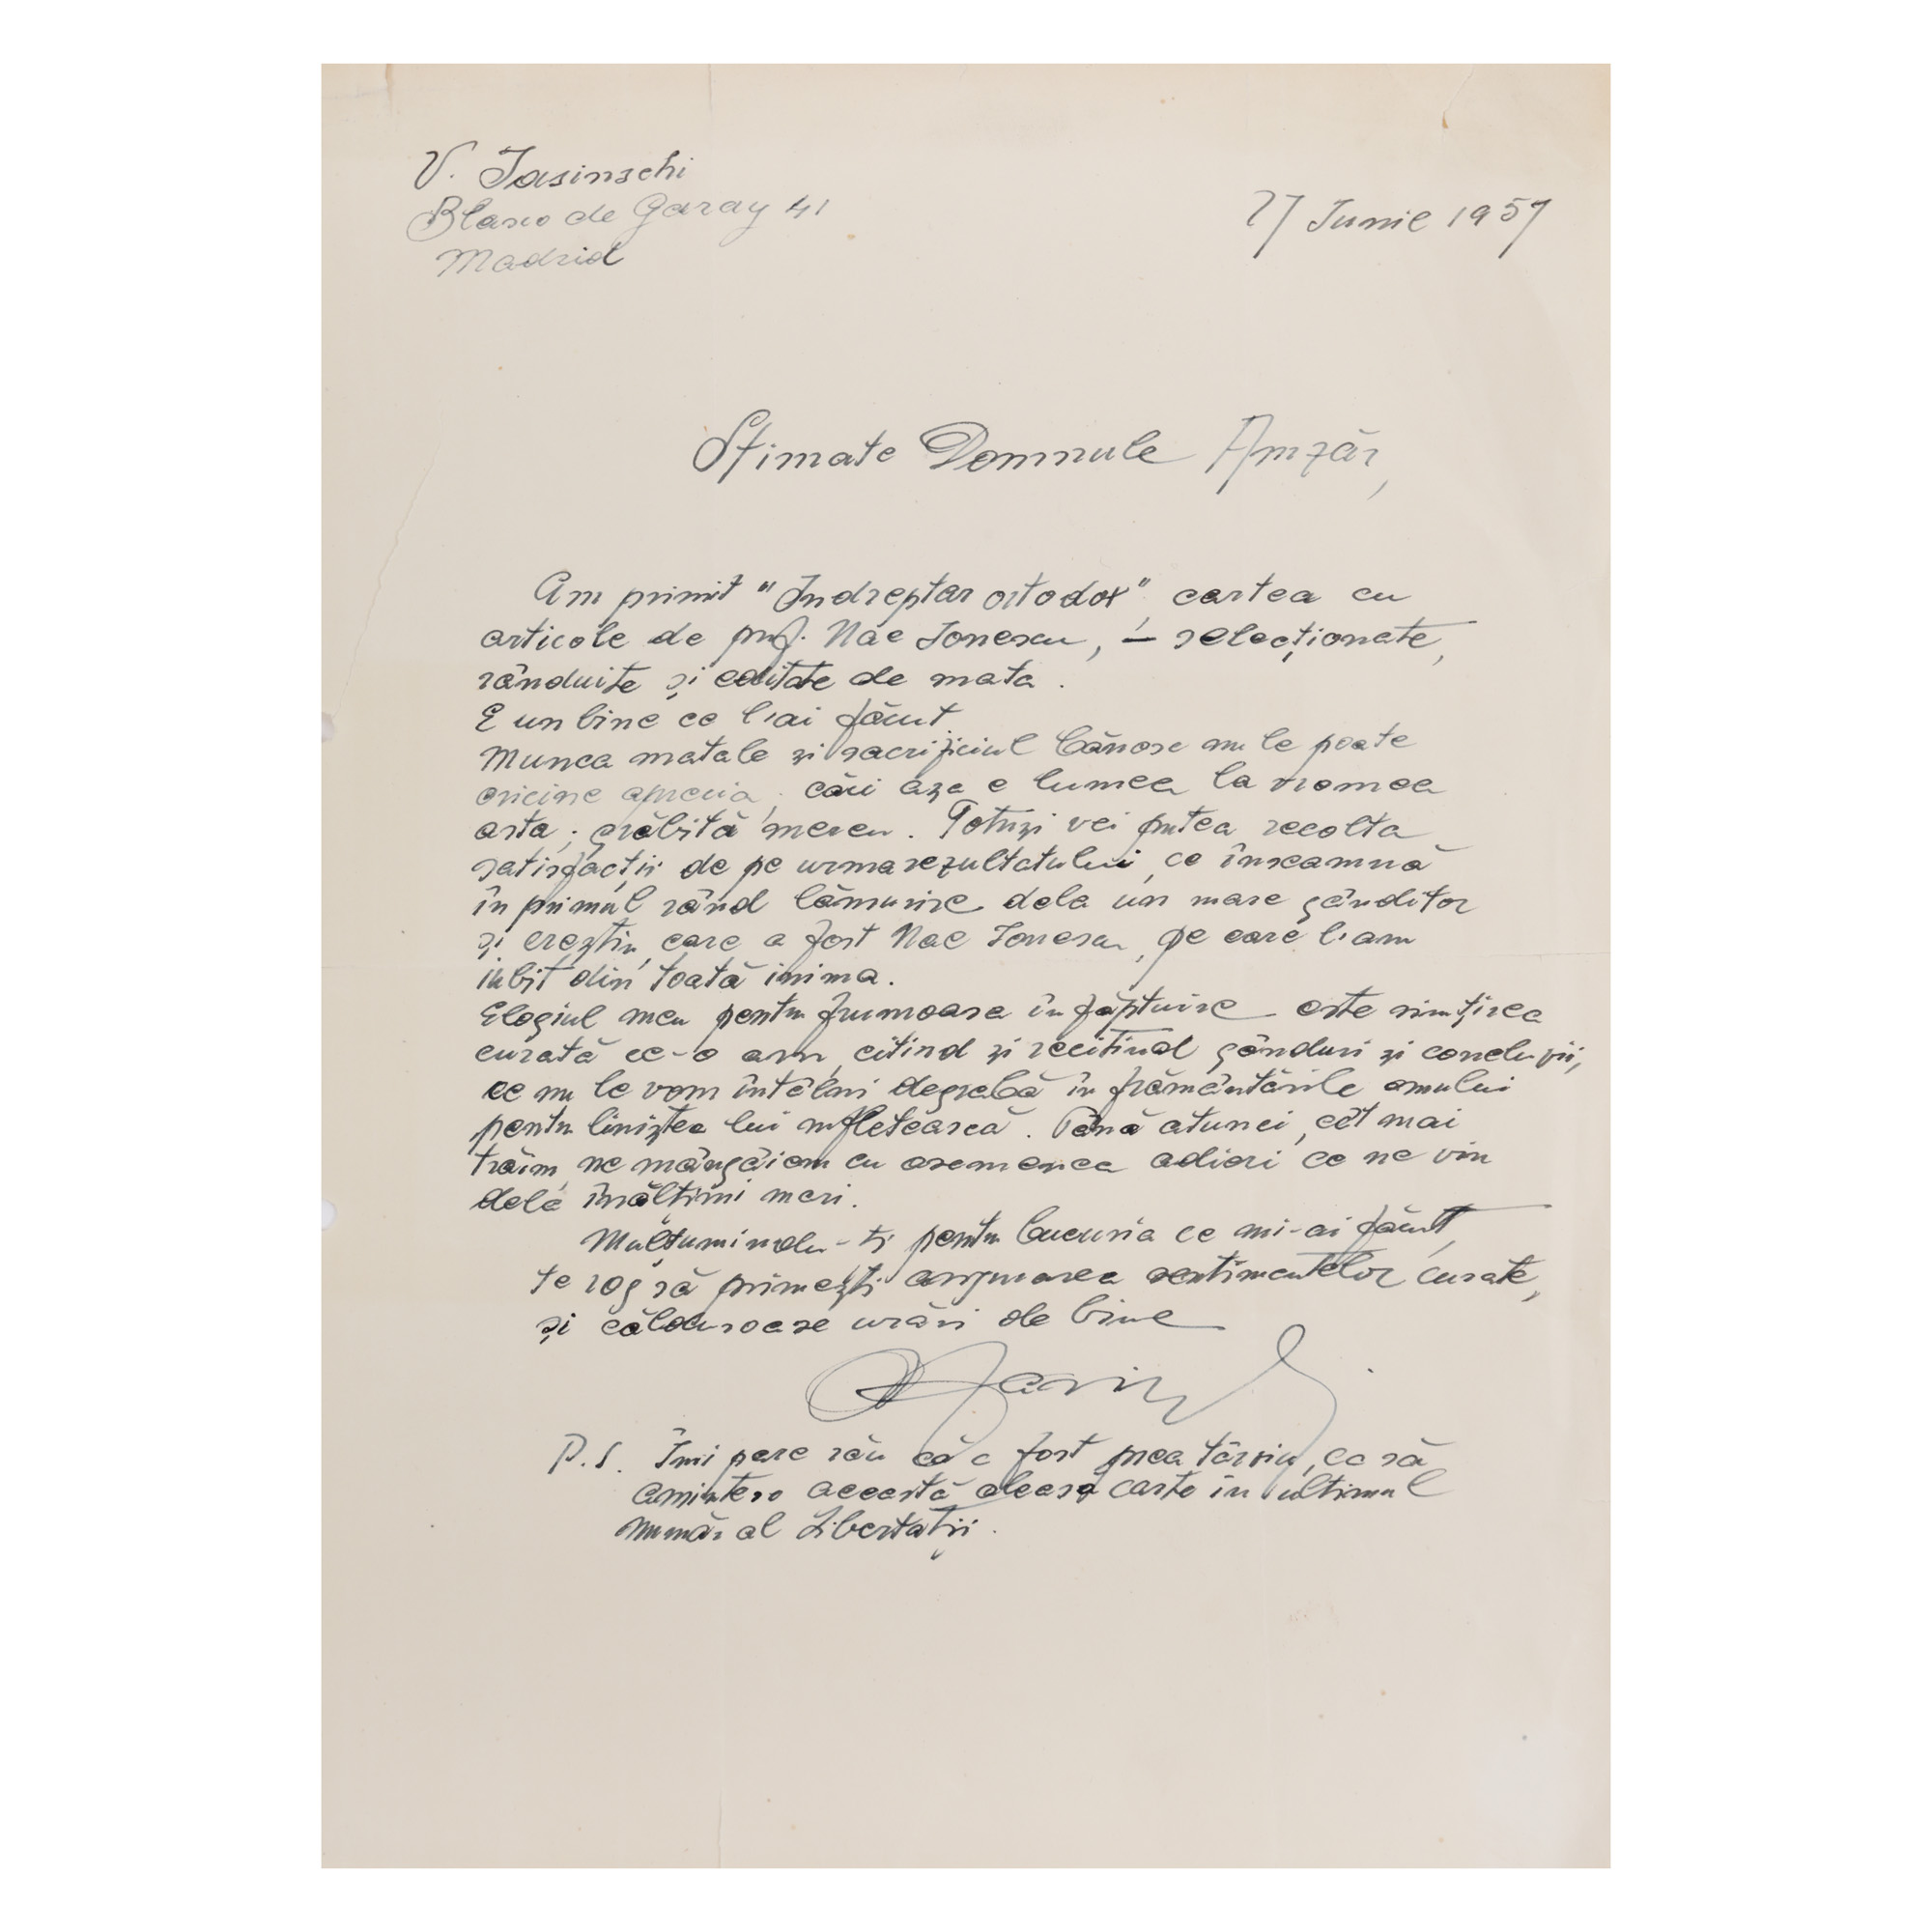 V. Iasinschi
Blasco de Garay 41
Madrid
27 Iunie 1957
Stimate Domnule Amzăr,
Am primit "Indreptar ortodox", cartea cu
articole de prof. Nae Ionescu, — selecționate,
rânduite și editate de mata.
E un bine ce l'ai făcut.
Munca matale și sacrificiul bănesc nu le poate
oricine aprecia, căci așa e lumea la vremea
asta; grăbită mereu. Totuși vei putea recolta
satisfacții de pe urma rezultatului, ce înseamnă
în primul rând lămurire dela un mare gânditor
și creștin, care a fost Nae Ionescu, pe care l'am
iubit din toată inima.
Elogiul meu pentru frumoasa înfăptuire este simțirea
curată ce-o am, citind și recitind gânduri și concluzii,
ce nu le vom întâlni degrabă în frământările omului
pentru liniștea lui sufletească. Până atunci, cât mai
trăim, ne mângâiem cu asemenea adieri ce ne vin
dela înălțimi mari.
Mulțumindu-ți pentru bucuria ce mi-ai făcut,
te rog să primești asigurarea sentimentelor curate,
și călduroase urări de bine
P.S. Îmi pare rău că a fost prea târziu, ca să
amintesc această aleasă carte în ultimul
număr al Libertății.